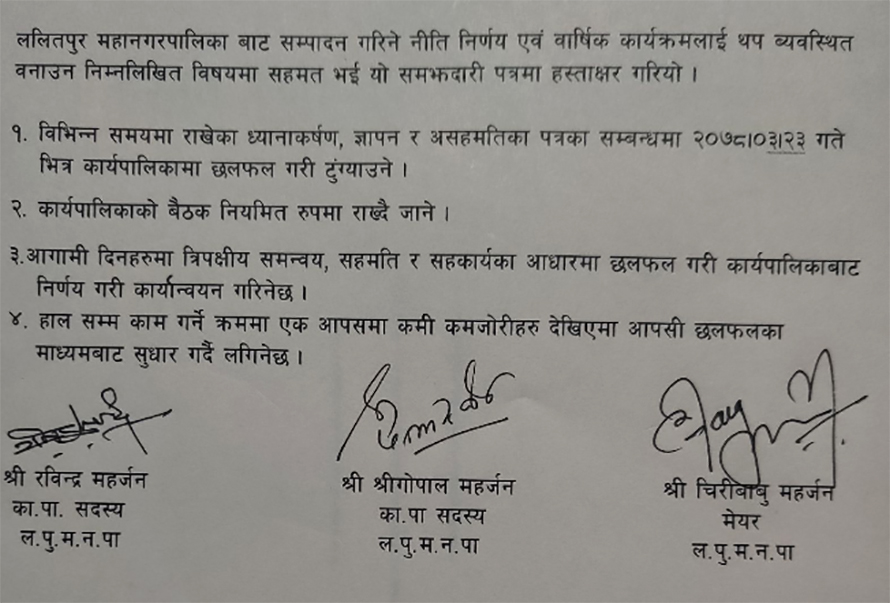 ललितपुर महानगरपालिका बाट सम्पादन गरिने नीति निर्णय एवं वार्षिक कार्यक्रमलाई थप ब्यवस्थित
वनाउन निम्नलिखित विषयमा सहमत भई यो समझदारी पत्रमा हस्ताक्षर गरियो ।
१. विभिन्न समयमा राखेका ध्यानाकर्षण, ज्ञापन र असहमतिका पत्रका सम्बन्धमा २०७८।०३।२३ गते
भित्र कार्यपालिकामा छलफल गरी टुंग्याउने ।
२. कार्यपालिकाको बैठक नियमित रुपमा राख्दै जाने ।
३.आगामी दिनहरुमा त्रिपक्षीय समन्वय, सहमति र सहकार्यका आधारमा छलफल गरी कार्यपालिकाबाट
निर्णय गरी कार्यान्वयन गरिनेछ ।
४. हाल सम्म काम गर्ने क्रममा एक आपसमा कमी कमजोरीहरु देखिएमा आपसी छलफलका
माध्यमबाट सुधार गर्दै लगिनेछ ।
श्री रविन्द्र महर्जन
का.पा. सदस्य
ल.पु.म.न.पा
श्री श्रीगोपाल महर्जन
का.पा सदस्य
ल.पु.म.न.पा
श्री चिरीबाबु महर्जन
मेयर
ल.पु.म.न.पा